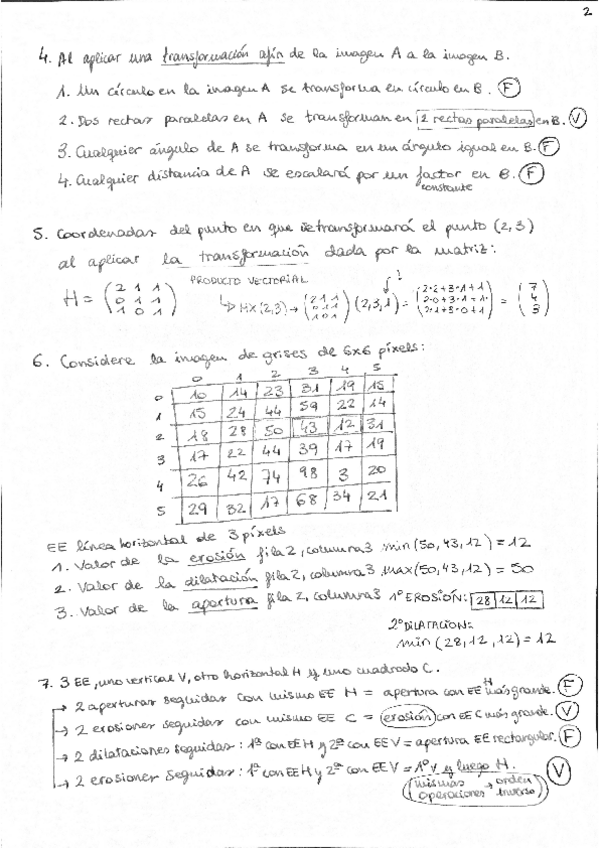 2
4. Al aplicar una transformación afín de la imagen A a la imagen B.
1. Un círculo en la imagen A se transforma en círculo en B. F
2. Dos rectas paralelas en A se transforman en 2 rectas paralelas en B. V
3. Cualquier ángulo de A se transforma en un ángulo igual en B. F
4. Cualquier distancia de A se escalará por un factor en B. F
constante
5. Coordenadas del punto en que se transformará el punto (2,3)
al aplicar la transformación dada por la matriz:
PRODUCTO VECTORIAL
2 1 1 2 1 1 2·2+3·1+1 7
H = 0 1 1 ↳ H×(2,3) → 0 1 1 (2,3,1) = 2·0+3·1+1· = 4
1 0 1 1 0 1 2·1+3·0+1 3
6. Considere la imagen de grises de 6x6 píxels:
0 1 2 3 4 5
0 10 14 23 31 19 15
1 15 24 44 59 22 14
2 18 28 50 43 12 31
3 17 22 44 39 17 19
4 26 42 74 98 3 20
5 29 32 17 68 34 21
EE línea horizontal de 3 píxels
1. Valor de la erosión fila 2, columna 3 min(50,43,12) = 12
2. Valor de la dilatación fila 2, columna 3 max(50,43,12) = 50
3. Valor de la apertura fila 2, columna 3 1º EROSIÓN: 28 12 12
2º DILATACIÓN:
min (28,12,12) = 12
7. 3 EE, uno vertical V, otro horizontal H y uno cuadrado C.
→ 2 aperturas seguidas con mismo EE H = apertura con EE H más grande. F
→ 2 erosiones seguidas con mismo EE C = erosión con EE C más grande. V
→ 2 dilataciones seguidas: 1ª con EE H y 2ª con EE V = apertura EE rectangular. F
→ 2 erosiones seguidas: 1ª con EE H y 2ª con EE V = 1º V y luego H. V
mismas operaciones → orden inverso